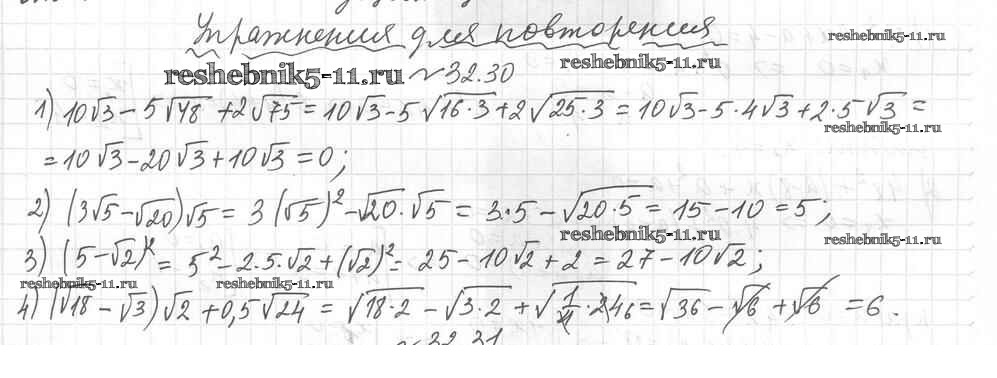 Упражнения для повторения
reshebnik5-11.ru
reshebnik5-11.ru
reshebnik5-11.ru №32.30
1) 10√3 − 5√48 + 2√75 = 10√3 − 5√(16·3) + 2√(25·3) = 10√3 − 5·4√3 + 2·5√3 =
reshebnik5-11.ru
= 10√3 − 20√3 + 10√3 = 0;
2) (3√5 − √20)√5 = 3(√5)² − √20·√5 = 3·5 − √(20·5) = 15 − 10 = 5;
reshebnik5-11.ru
reshebnik5-11.ru
3) (5 − √2)² = 5² − 2·5·√2 + (√2)² = 25 − 10√2 + 2 = 27 − 10√2;
reshebnik5-11.ru
reshebnik5-11.ru
4) (√18 − √3)√2 + 0,5√24 = √(18·2) − √(3·2) + √(1/4·24 6) = √36 − √6 + √6 = 6.
№32.31